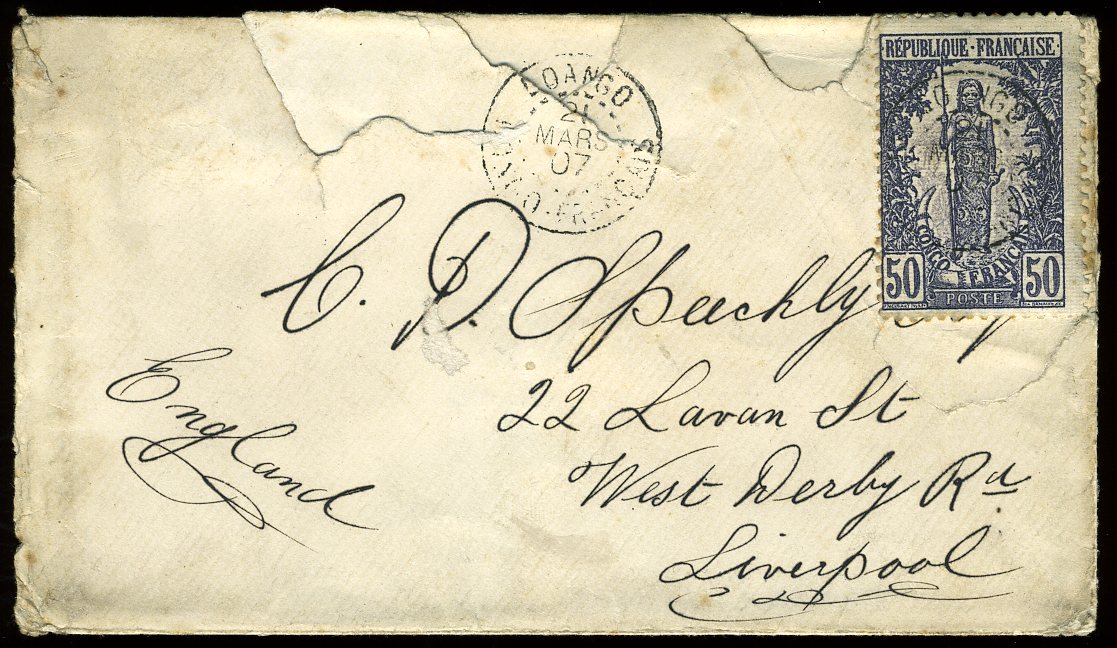 LOANGO
21
MARS
07
CONGO-FRANÇAIS
RÉPUBLIQUE·FRANÇAISE
LOANGO
CONGO FRANÇAIS
50 50
POSTE
C. D. Speechly
22 Lavan St
West Derby Rd
Liverpool
England